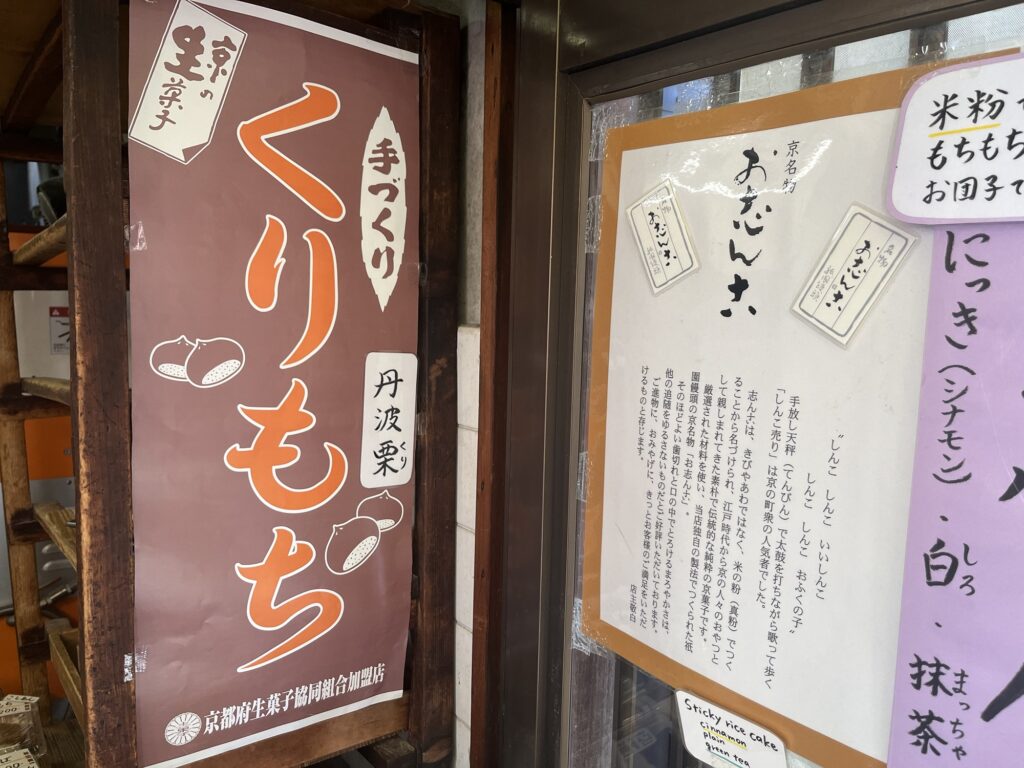 京の
生菓子
手づくり
くりもち
丹波栗
くり
京都府生菓子協同組合加盟店
京名物
お志ん古
名物
お志ん古
お志ん古
〝しんこ しんこ いいしんこ
しんこ しんこ おふくの子〟
手放し天秤(てんびん)で太鼓を打ちながら歌って歩く
「しんこ売り」は京の町衆の人気者でした。
志ん古は、きびやあわではなく、米の粉(真粉)でつく
ることから名づけられ、江戸時代から京の人々のおやつと
して親しまれてきた素朴で伝統的な純粋の京菓子です。
厳選された材料を使い、当店独自の製法でつくられた祇
園饅頭の京名物「お志ん古」。
そのほどよい歯切れと口の中でとろけるまろやかさは、
他の追随をゆるさないものだとご好評いただいております。
ご進物に、おみやげに、きっとお客様のご満足をいただ
けるものと存じます。
店主敬白
米粉
もちもち
お団子で
にっき(シナモン)・白・抹茶
しろ
まっちゃ
Sticky rice cake
cinnamon
plain
green tea